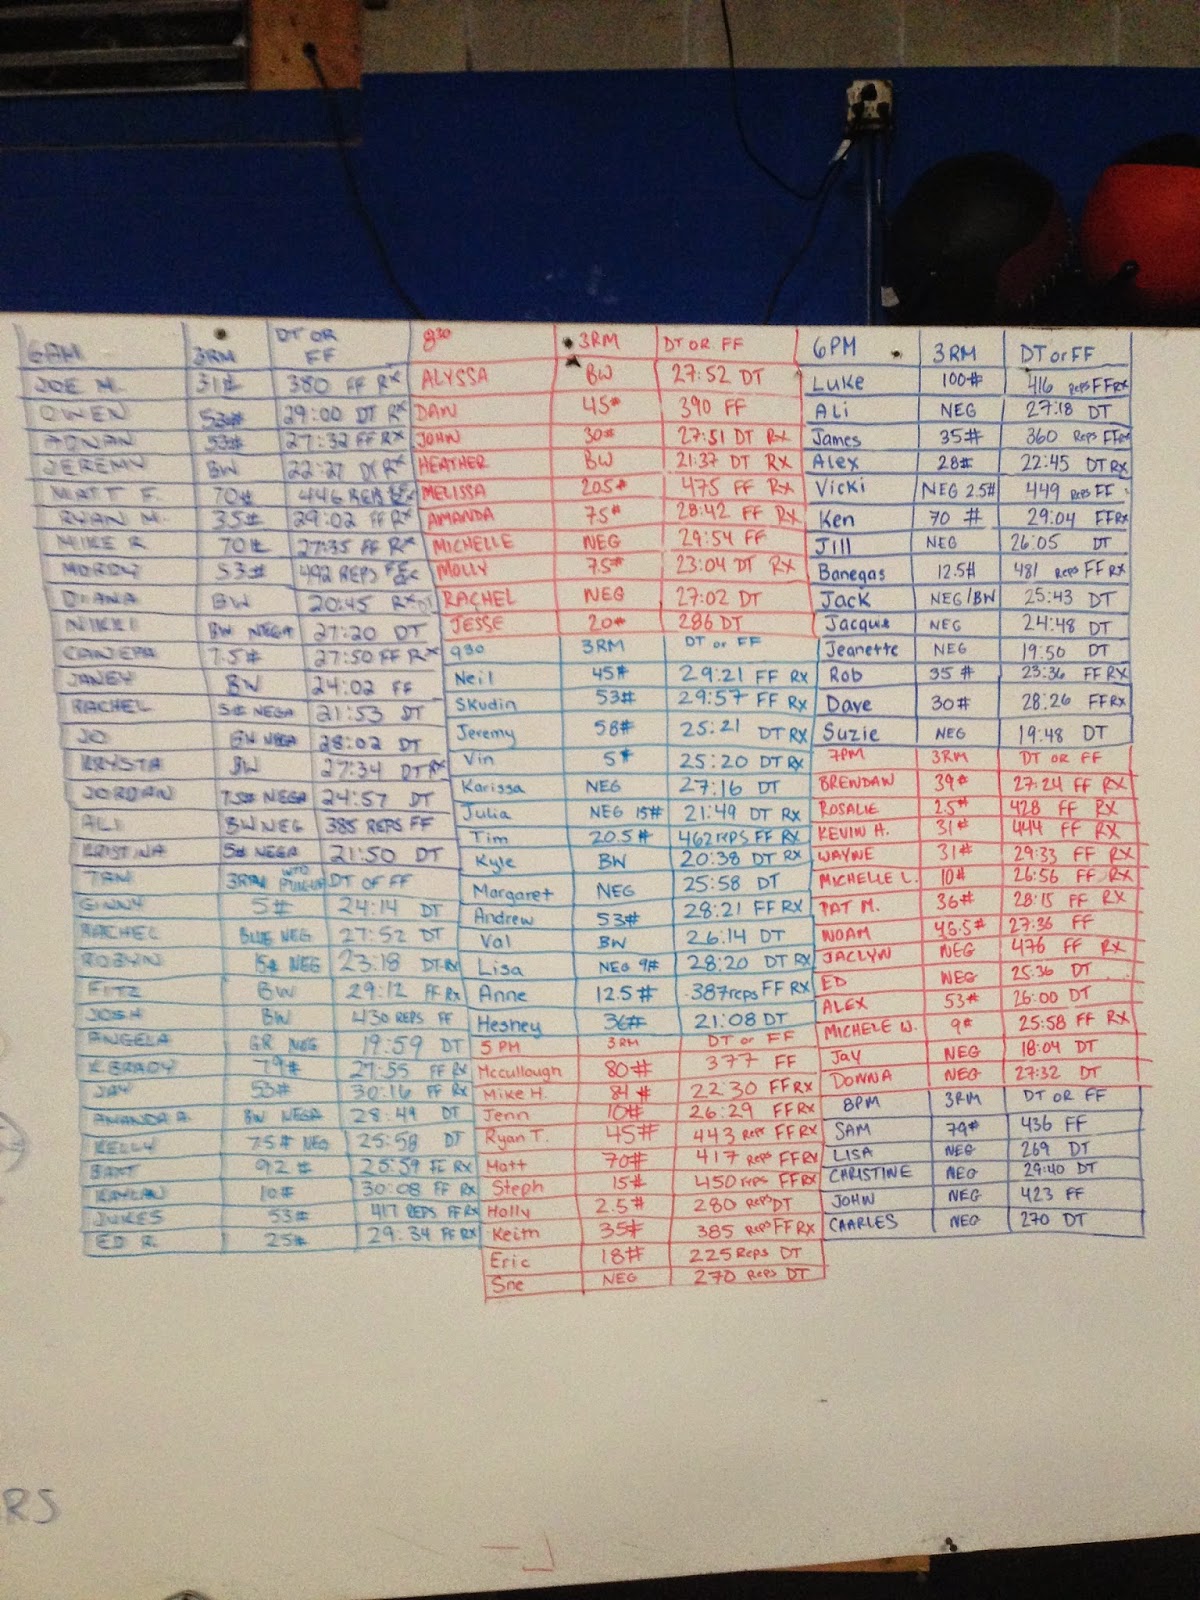 6AM 3RM DT OR FF
JOE M. 31# 380 FF RX
OWEN 53# 29:00 DT RX
ADNAN 53# 27:32 FF RX
JEREMY BW 22:27 DT RX
MATT F. 70# 446 REPS FF RX
RYAN M. 35# 29:02 FF RX
MIKE R 70# 27:35 FF RX
MORDY 53# 492 REPS FF RX
DIANA BW 20:45 RX DT
NIKKI BW NEGA 27:20 DT
CANEPA 7.5# 27:50 FF RX
JANEY BW 24:02 FF
RACHEL 5# NEGA 21:53 DT
JO BW NEGA 28:02 DT
KRYSTA BW 27:34 DT RX
JORDAN 7.5# NEGA 24:57 DT
ALI BW NEG 385 REPS FF
KRISTINA 5# NEGA 21:50 DT
7AM 3RM WTD PULLUP DT OF FF
GINNY 5# 24:14 DT
RACHEL BLUE NEG 27:52 DT
ROBYN 15# NEG 23:18 DT RX
FITZ BW 29:12 FF RX
JOSH BW 430 REPS FF
ANGELA GR NEG 19:59 DT
K. BRADY 79# 27:55 FF RX
JAY 53# 30:16 FF RX
AMANDA A. BW NEGA 28:49 DT
KELLY 7.5# NEG 25:58 DT
BART 92# 25:59 FF RX
KAYLAN 10# 30:08 FF RX
JUKES 53# 417 REPS FF RX
ED R. 25# 29:34 FF RX
830 3RM DT OR FF
ALYSSA BW 27:52 DT
DAN 45# 390 FF
JOHN 30# 27:51 DT RX
HEATHER BW 21:37 DT RX
MELISSA 20.5# 475 FF RX
AMANDA 7.5# 28:42 FF RX
MICHELLE NEG 29:54 FF
MOLLY 7.5# 23:04 DT RX
RACHEL NEG 27:02 DT
JESSE 20# 286 DT
930 3RM DT or FF
Neil 45# 29:21 FF RX
Skudin 53# 29:57 FF RX
Jeremy 58# 25:21 DT RX
Vin 5# 25:20 DT RX
Karissa NEG 27:16 DT
Julia NEG 15# 21:49 DT RX
Tim 20.5# 462 reps FF RX
Kyle BW 20:38 DT RX
Margaret NEG 25:58 DT
Andrew 53# 28:21 FF RX
Val BW 26:14 DT
Lisa NEG 9# 28:20 DT RX
Anne 12.5# 387 reps FF RX
Heshey 36# 21:08 DT
5 PM 3RM DT or FF
Mccullough 80# 377 FF
Mike H. 84# 22:30 FF RX
Jenn 10# 26:29 FF RX
Ryan T. 45# 443 reps FF RX
Matt 70# 417 reps FF RX
Steph 15# 450 reps FF RX
Holly 2.5# 280 reps DT
Keith 35# 385 reps FF RX
Eric 18# 225 Reps DT
Sne NEG 270 Reps DT
6PM 3RM DT or FF
Luke 100# 416 reps FF RX
Ali NEG 27:18 DT
James 35# 360 Reps FF RX
Alex 28# 22:45 DT RX
Vicki NEG 2.5# 449 reps FF
Ken 70# 29:04 FF RX
Jill NEG 26:05 DT
Banegas 12.5# 481 reps FF RX
Jack NEG/BW 25:43 DT
Jacque NEG 24:48 DT
Jeanette NEG 19:50 DT
Rob 35# 23:36 FF RX
Dave 30# 28:26 FF RX
Suzie NEG 19:48 DT
7PM 3RM DT OR FF
BRENDAN 39# 27:24 FF RX
ROSALIE 2.5# 428 FF RX
KEVIN H. 31# 444 FF RX
WAYNE 31# 29:33 FF RX
MICHELLE L. 10# 26:56 FF RX
PAT M. 36# 28:15 FF RX
NOAM 45.5# 27:36 FF
JACLYN NEG 476 FF RX
ED NEG 25:36 DT
ALEX 53# 26:00 DT
MICHELE W. 9# 25:58 FF RX
JAY NEG 18:04 DT
DONNA NEG 27:32 DT
8PM 3RM DT OR FF
SAM 79# 436 FF
LISA NEG 269 DT
CHRISTINE NEG 29:40 DT
JOHN NEG 423 FF
CHARLES NEG 270 DT
RS